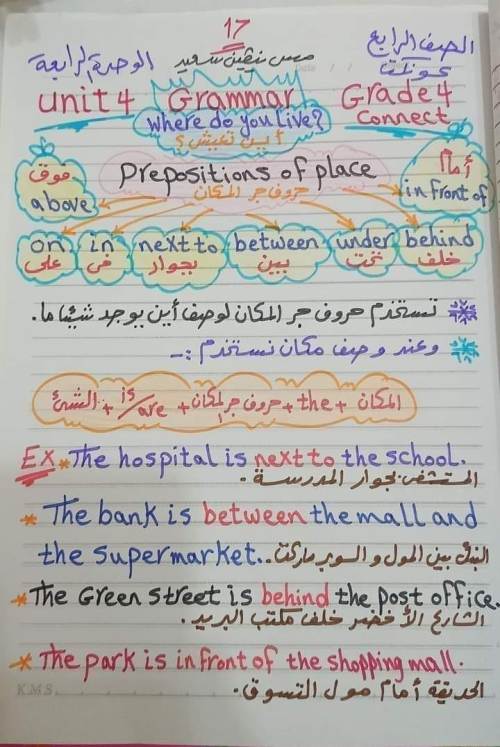 17
الصف الرابع مس نيفين سعيد الوحدة الرابعة
كونكت
unit 4 Grammar Grade 4
where do you live? Connect
أين تعيش؟
فوق Prepositions of place أمام
above حروف جر المكان in front of
on in next to between under behind
على فى بجوار بين تحت خلف
تستخدم حروف جر المكان لوصف أين يوجد شيئا ما.
وعند وصف مكان نستخدم :-
الشئ + is/are + حروف جر المكان + the + المكان
Ex * The hospital is next to the school.
المستشفى بجوار المدرسة.
* The bank is between the mall and
the supermarket.. البنك بين المول و السوبر ماركت..
* The Green street is behind the post office.
الشارع الأخضر خلف مكتب البريد.
* The park is in front of the shopping mall.
K.M.S. الحديقة أمام مول التسوق.